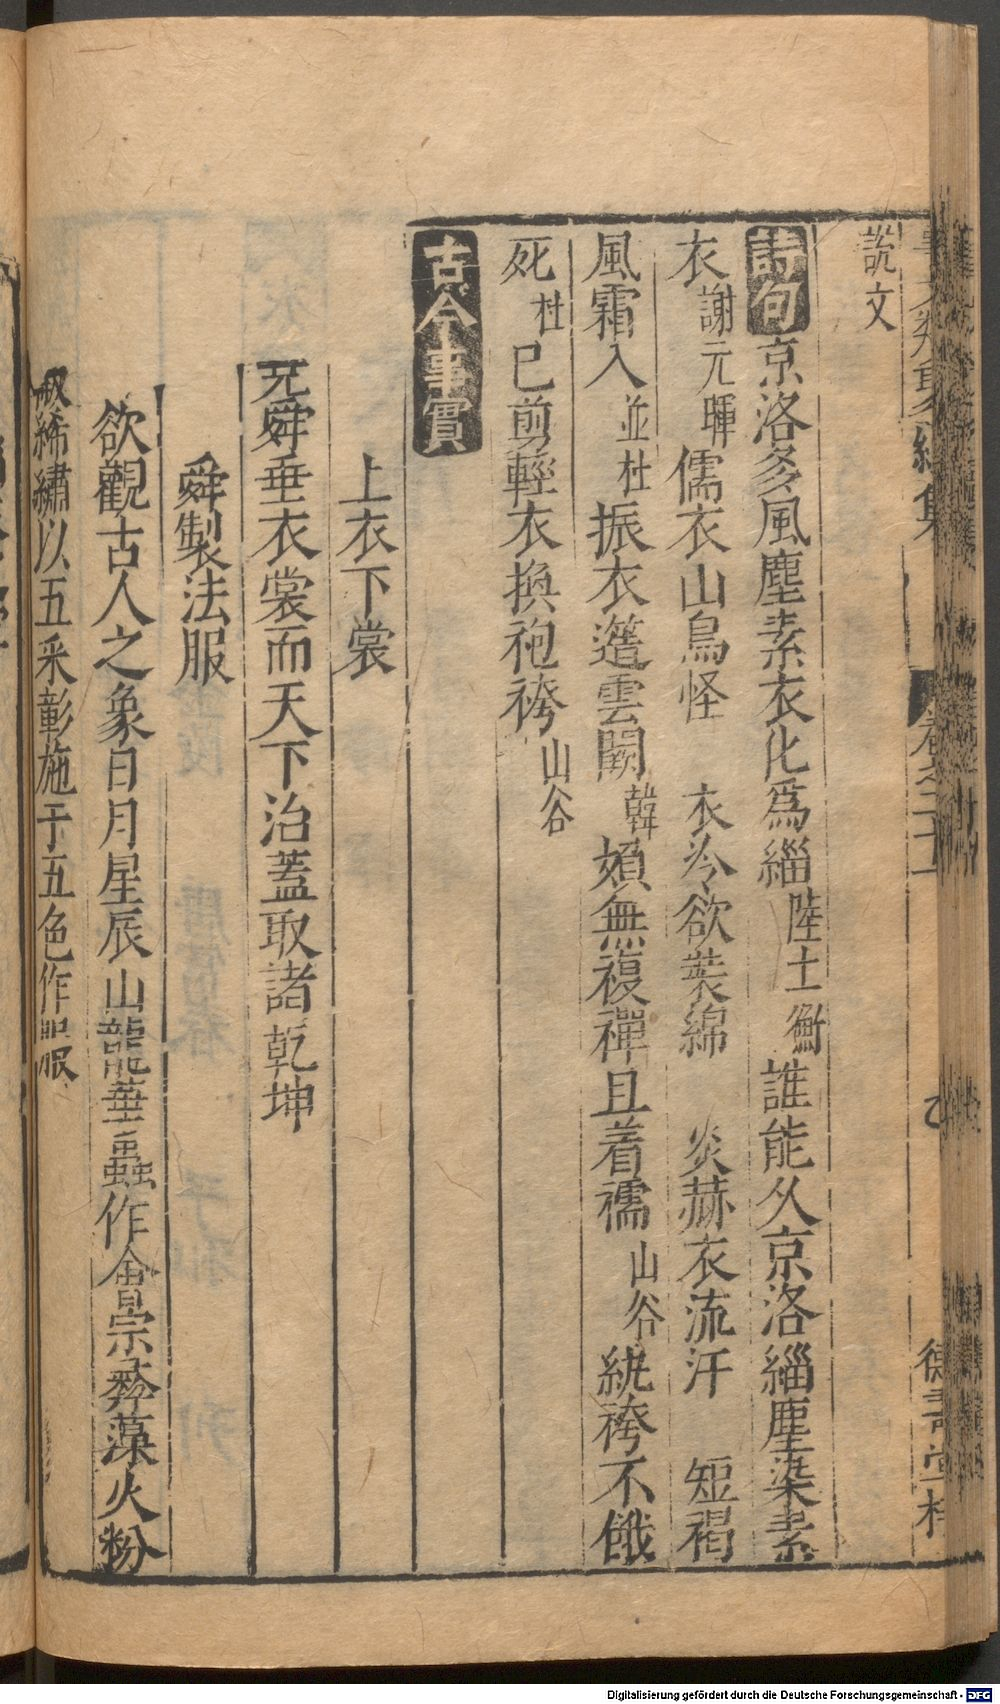 説文
詩句京洛多風塵素衣化爲緇陸士衡誰能久京洛緇塵染素
衣謝元暉儒衣山鳥怪 衣冷欲裝綿 炎赫衣流汗 短褐
風霜入並杜振衣遊雲闕韓頗無複襌且着襦山谷紈袴不餓
死杜已剪輕衣換袍袴山谷
古今事實
上衣下裳
堯舜垂衣裳而天下治蓋取諸乾坤
舜製法服
欲觀古人之象日月星辰山龍華蟲作會宗彝藻火粉
米黻絺繡以五采彰施于五色作服
Digitalisierung gefördert durch die Deutsche Forschungsgemeinschaft - DFG